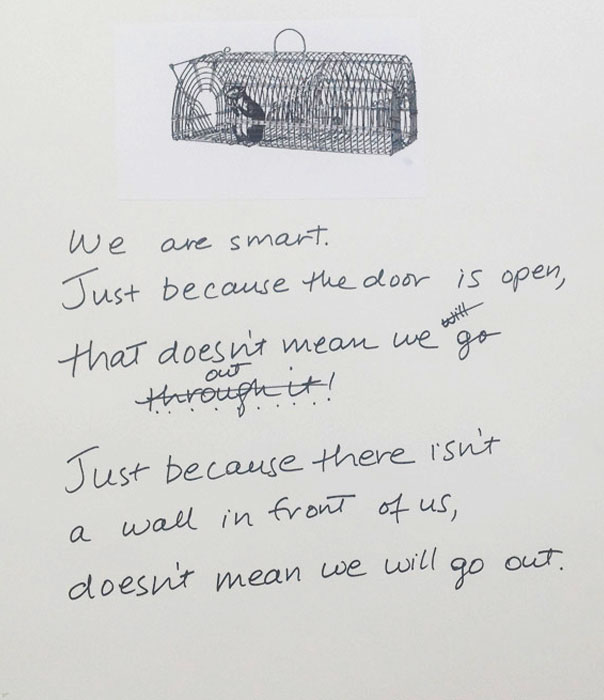 We are smart.
Just because the door is open,
that doesn't mean we will go
out
through it!
Just because there isn't
a wall in front of us,
doesn't mean we will go out.